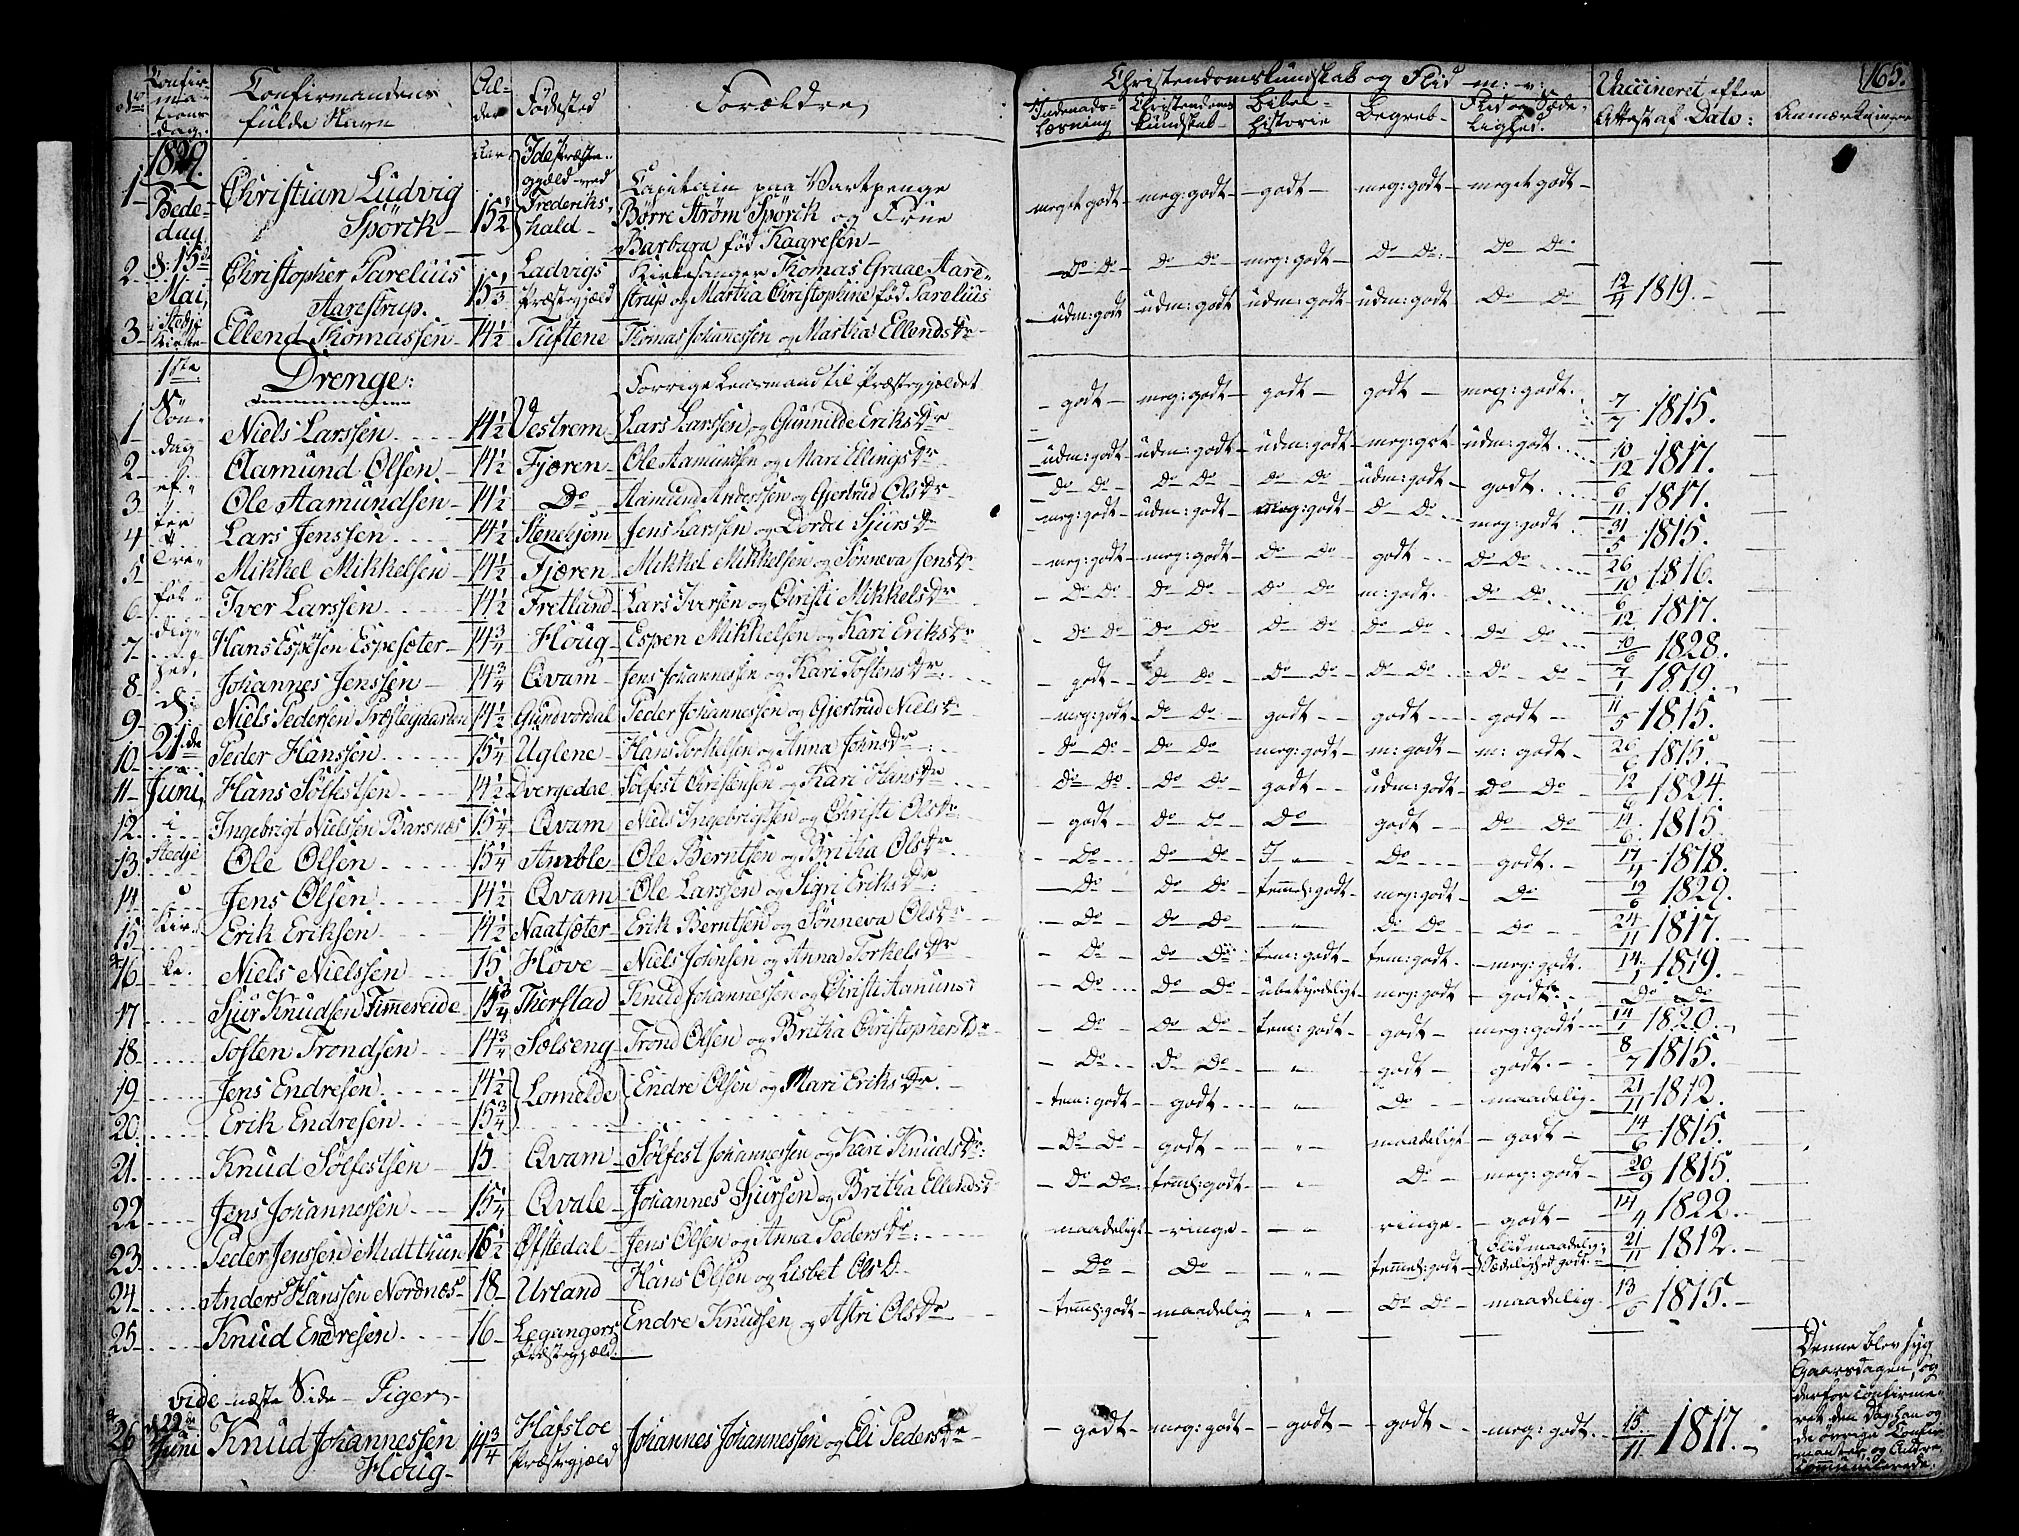 165.
No Confirmationsdag. Confirmandens fulde Navn Alder Fødested Forældre Christendomskundskab og Flid m: v: Vaccineret efter Attest af Dato: Anmærkninger
Indenadslæsning Christendomskundskab Bibelhistorie Begreb Flid og Sædelighed.
1829.
Bededag d: 15de Mai, i Stedje Kirke
1 Christian Ludvig Spörck 15½ Idde Præstegjæld ved Frederikshald Capitain paa Vartpenge Børre Strøm Spörck og Frue Barbara fød Kaaresen meget godt meg: godt godt meg: godt meget godt
2 Christopher Parelius Aarestrup. 15⅓ Ladvigs Præstegjæld Kirkesanger Thomas Graae Aarestrup og Martha Christophine fød Parelius Do Do Do Do meg: godt Do Do Do Do
3 Ellend Thomassen 14½ Tuftene Thomas Johannessen og Martha Ellends Dr udm: godt udm: godt udm: godt udm: godt Do Do 12/4 1819.
1ste Søndag efter Trefoldighed, d: 21de Juni, i Stedje Kirke.
Drenge:
1 Niels Larssen 14½ Vestrem Forrige Lensmand til Præstegjældet Lars Larssen og Gunnilde Eriks Dr godt meg: godt godt godt meg: godt. 7/7 1815.
2 Aamund Olsen 14½ Fjæren Ole Aamundsen og Mari Ellings Dr udm: godt udm: godt udm: godt meg: got udm: godt 10/12 1817.
3 Ole Aamundsen 14½ Do Aamund Anderssen og Gjertrud Ols Dr Do Do Do Do Do Do udm: godt godt 6/11 1817.
4 Lars Jenssen 14½ Stenehjem Jens Larssen og Dordu Sjurs Dr meg: godt udm: godt meg: godt Do Do meg: godt 31/5 1815.
5 Mikkel Mikkelsen 14½ Fjæren Mikkel Mikkelsen og Sønneva Jens Dr meg: godt meg: godt Do Do godt Do Do 26/10 1816.
6 Iver Larssen 14½ Fretland Lars Iversen og Christi Mikkels Dr Do Do Do Do Do Do m: godt. Do Do 6/12 1817.
7 Hans Espesen Espesæter 14¾ Houg Espen Mikkelsen og Kari Eriks Dr Do Do Do Do Do Do Do Do Do Do 10/6 1828.
8 Johannes Jenssen 14¾ Qvam Jens Johannessen og Kari Tostens Dr godt Do Do Do Do Do Do Do Do 7/1 1819.
9 Niels Pedersen Præstegaarden 14½ Gundvordal Peder Johannessen og Gjertrud Niels Dr meg: godt Do Do godt godt godt 11/5 1815.
10 Peder Hanssen 15¼ Uglene Hans Torkelsen og Anna Johns Dr Do Do Do Do meg: godt m: godt m: godt 26/6 1815.
11 Hans Sölfestsen 14½ Dvergedal Sölfest Christensen og Kari Hans Dr Do Do Do Do godt udm: godt Do Do 12/9 1824.
12. Ingebrigt Nielssen Barsnæs 15¼ Qvam Niels Ingebrigtsen og Christi Ols Dr godt Do Do Do godt Do Do 14/6 1815.
13. Ole Olsen 15¼ Amble Ole Berntsen og Britha Ols Dr Do Do Do Do godt. 17/4 1818.
14. Jens Olsen 14½ Qvam Ole Larssen og Sigri Eriks Dr: Do Do Do temmel: godt meg: godt Do 12/6 1829.
15. Erik Eriksen 14½ Naatsæter Erik Berntsen og Sønneva Ols Dr Do Do Do Do Do Do 24/11 1817.
16 Niels Nielssen 15 Hove Niels Johnsen og Anna Torkels Dr Do Do Do tem: godt tem: godt meg: godt. 14/1 1819.
17 Sjur Knudsen Fimmereide 15¾ Thorstad Knud Johannessen og Christi Aamuns: Do Do Do ubetydeligt meg: godt godt Do Do
18 Tosten Trondsen 14¾ Sælseng Trond Olsen og Britha Christophers Dr Do Do Do tem: godt godt meg: godt 14/1 1820.
19 Jens Endresen 14½ Lomelde Endre Olsen og Mari Eriks Dr. Do Do Do „ godt godt. 8/7 1815.
20. Erik Endresen 15¾ tem: godt godt „ Do maadelig 21/11 1812.
21. Knud Sölfestsen 15 Qvam Sölfest Johannessen og Kari Knuds Dr: Do Do godt „ maadeligt godt 14/6 1815.
22. Jens Johannessen 15¼ Qvale Johannes Sjursen og Britha Ellends Dr Do Do temel: godt „ Do meg: godt 20/9 1815.
23. Peder Jenssen Midtthun 16½ Öfstedal Jens Olsen og Anna Peders Dr: maadeligt ringe „ ringe godt 14/4 1822.
24. Anders Hanssen Nordnæs 18 Urland Hans Olsen og Lisbet Ols D Do Do „ temmel: godt Flid maadelig Sædelighed godt. 21/11 1812.
25. Knud Endresen 16 Leganger Præstegjæld. Endre Knudsen og Astri Ols Dr temmel: godt maadelig „ Do Do maadelig 13/6 1815.
vide næste Side Piger
26 d 22de Juni Knud Johannessen Houg 14¾ Hafsloe Præstegjæld Johannes Johannessen og Eli Peders Dr godt meg: godt godt godt meg: godt. 15/11 1817.
Denne blev syg
Gaarsdagen, og
derfor confirmeret
den Dag han og
de øvrige Confirmanter
og Andre
communicerede.